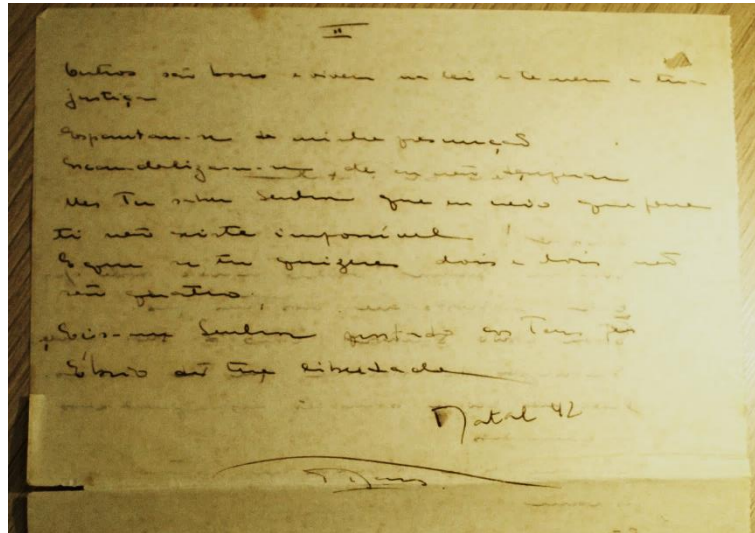 II
Outros são bons e vivem na lei e temem a tua
justiça
Espantam-se de minha presunção
Escandalizam-se, de eu não
Mas Tu sabes Senhor que eu creio que para
ti não existe impossível!
E que se tu quizeres dois e dois não
são quatro
Eis-me Senhor prostrado aos Teus pés
Ébrio da tua liberdade
Natal 42